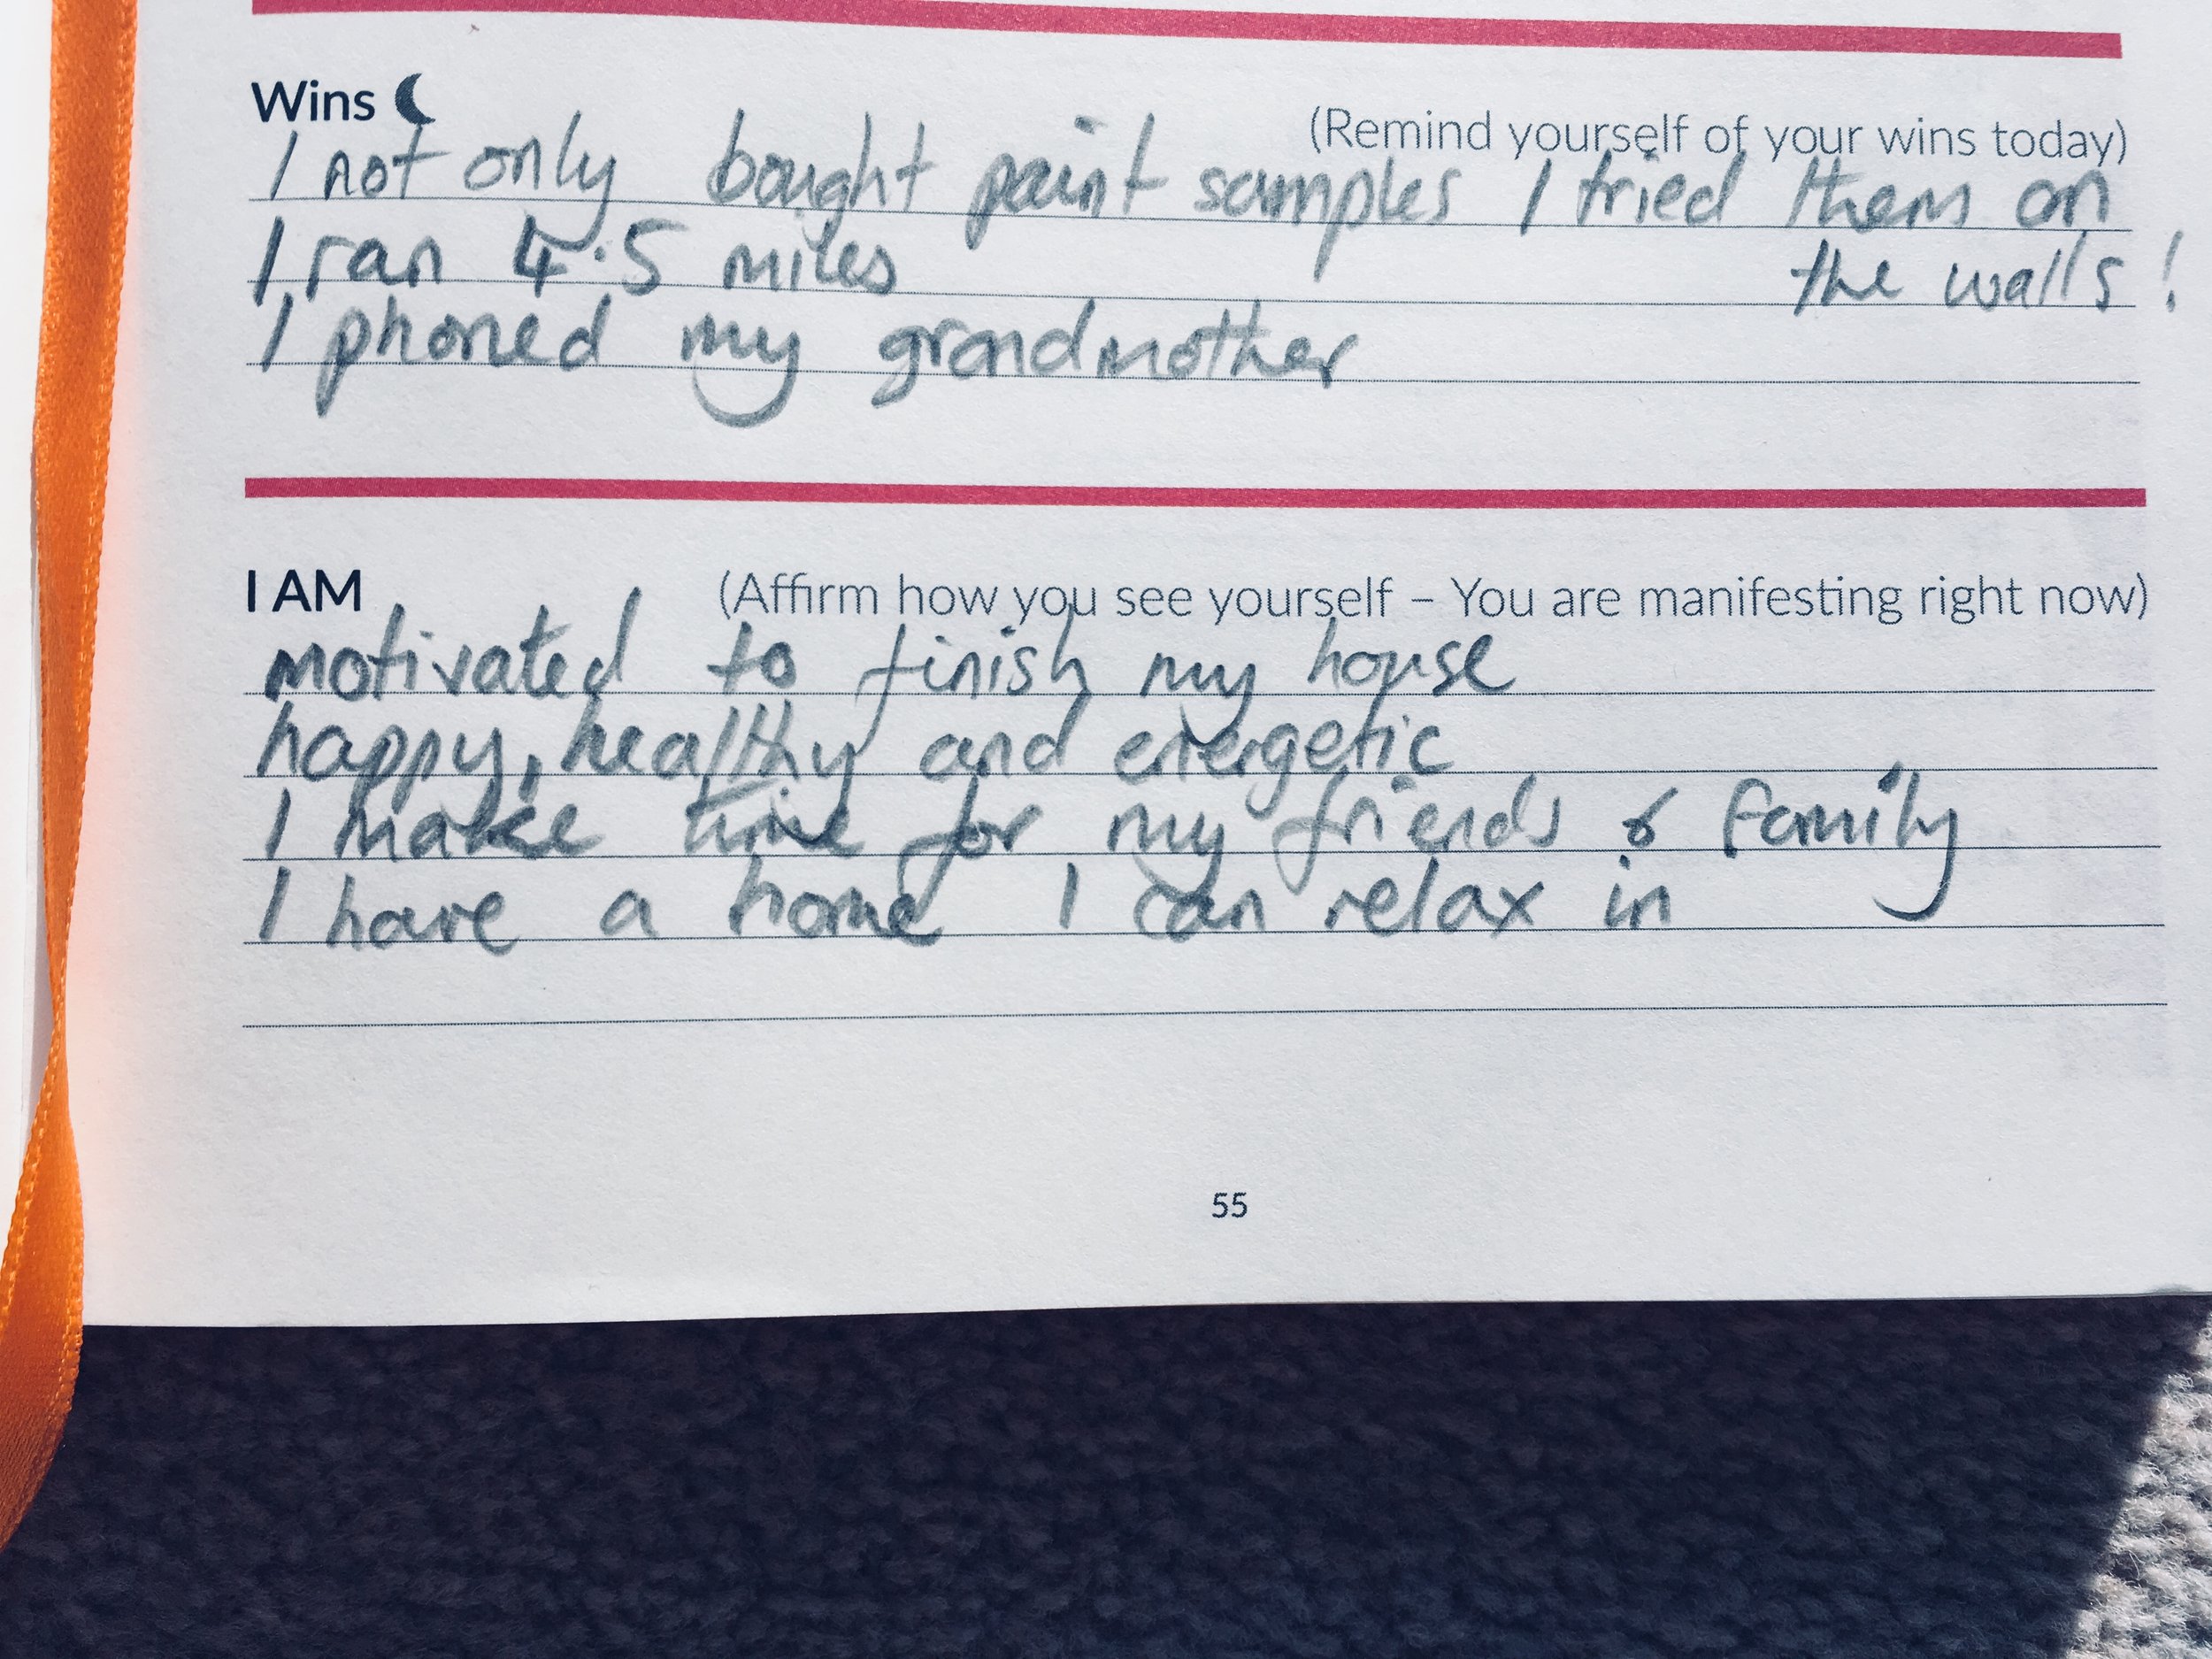 Wins
(Remind yourself of your wins today)
I not only bought paint samples I tried them on
the walls!
I ran 4.5 miles
I phoned my grandmother
I AM (Affirm how you see yourself – You are manifesting right now)
motivated to finish my house
happy, healthy and energetic
I make time for my friends & family
I have a home I can relax in
55